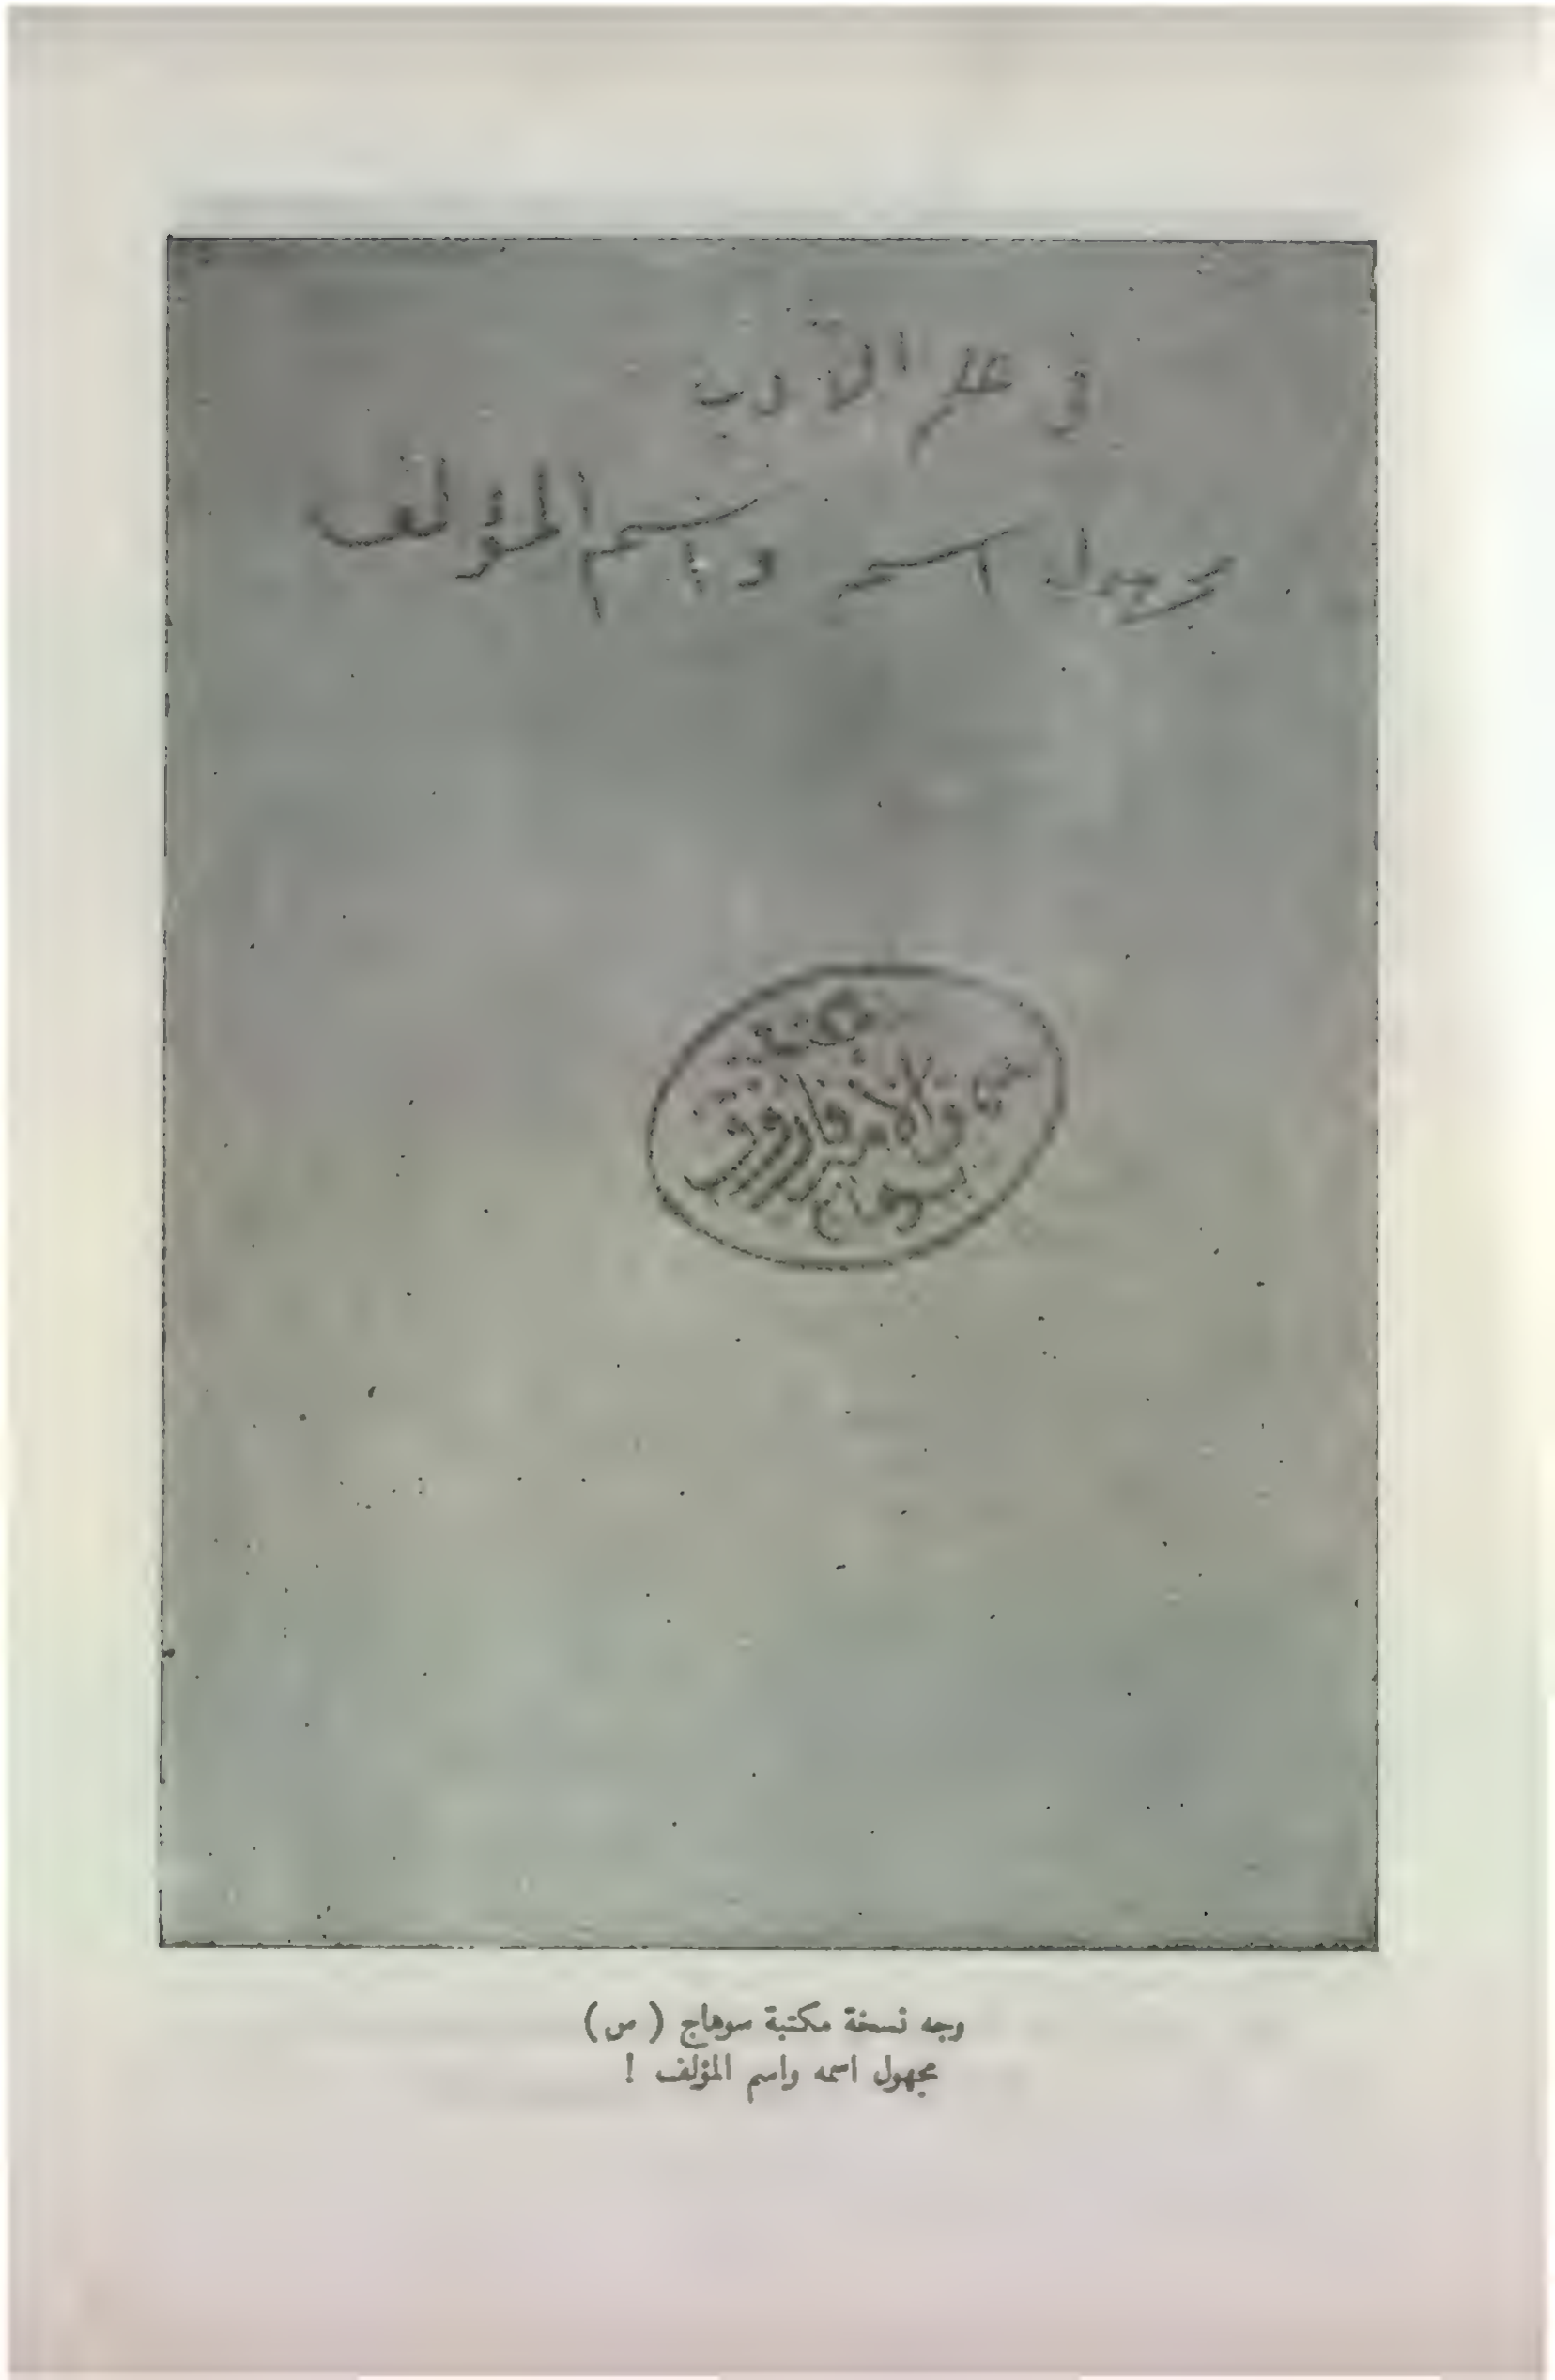 في علم الأدب
مجهول اسمه واسم المؤلف
مكتبة
فاروق
بسوهاج
وجه نسخة مكتبة سوهاج ( س )
مجهول اسمه واسم المؤلف !